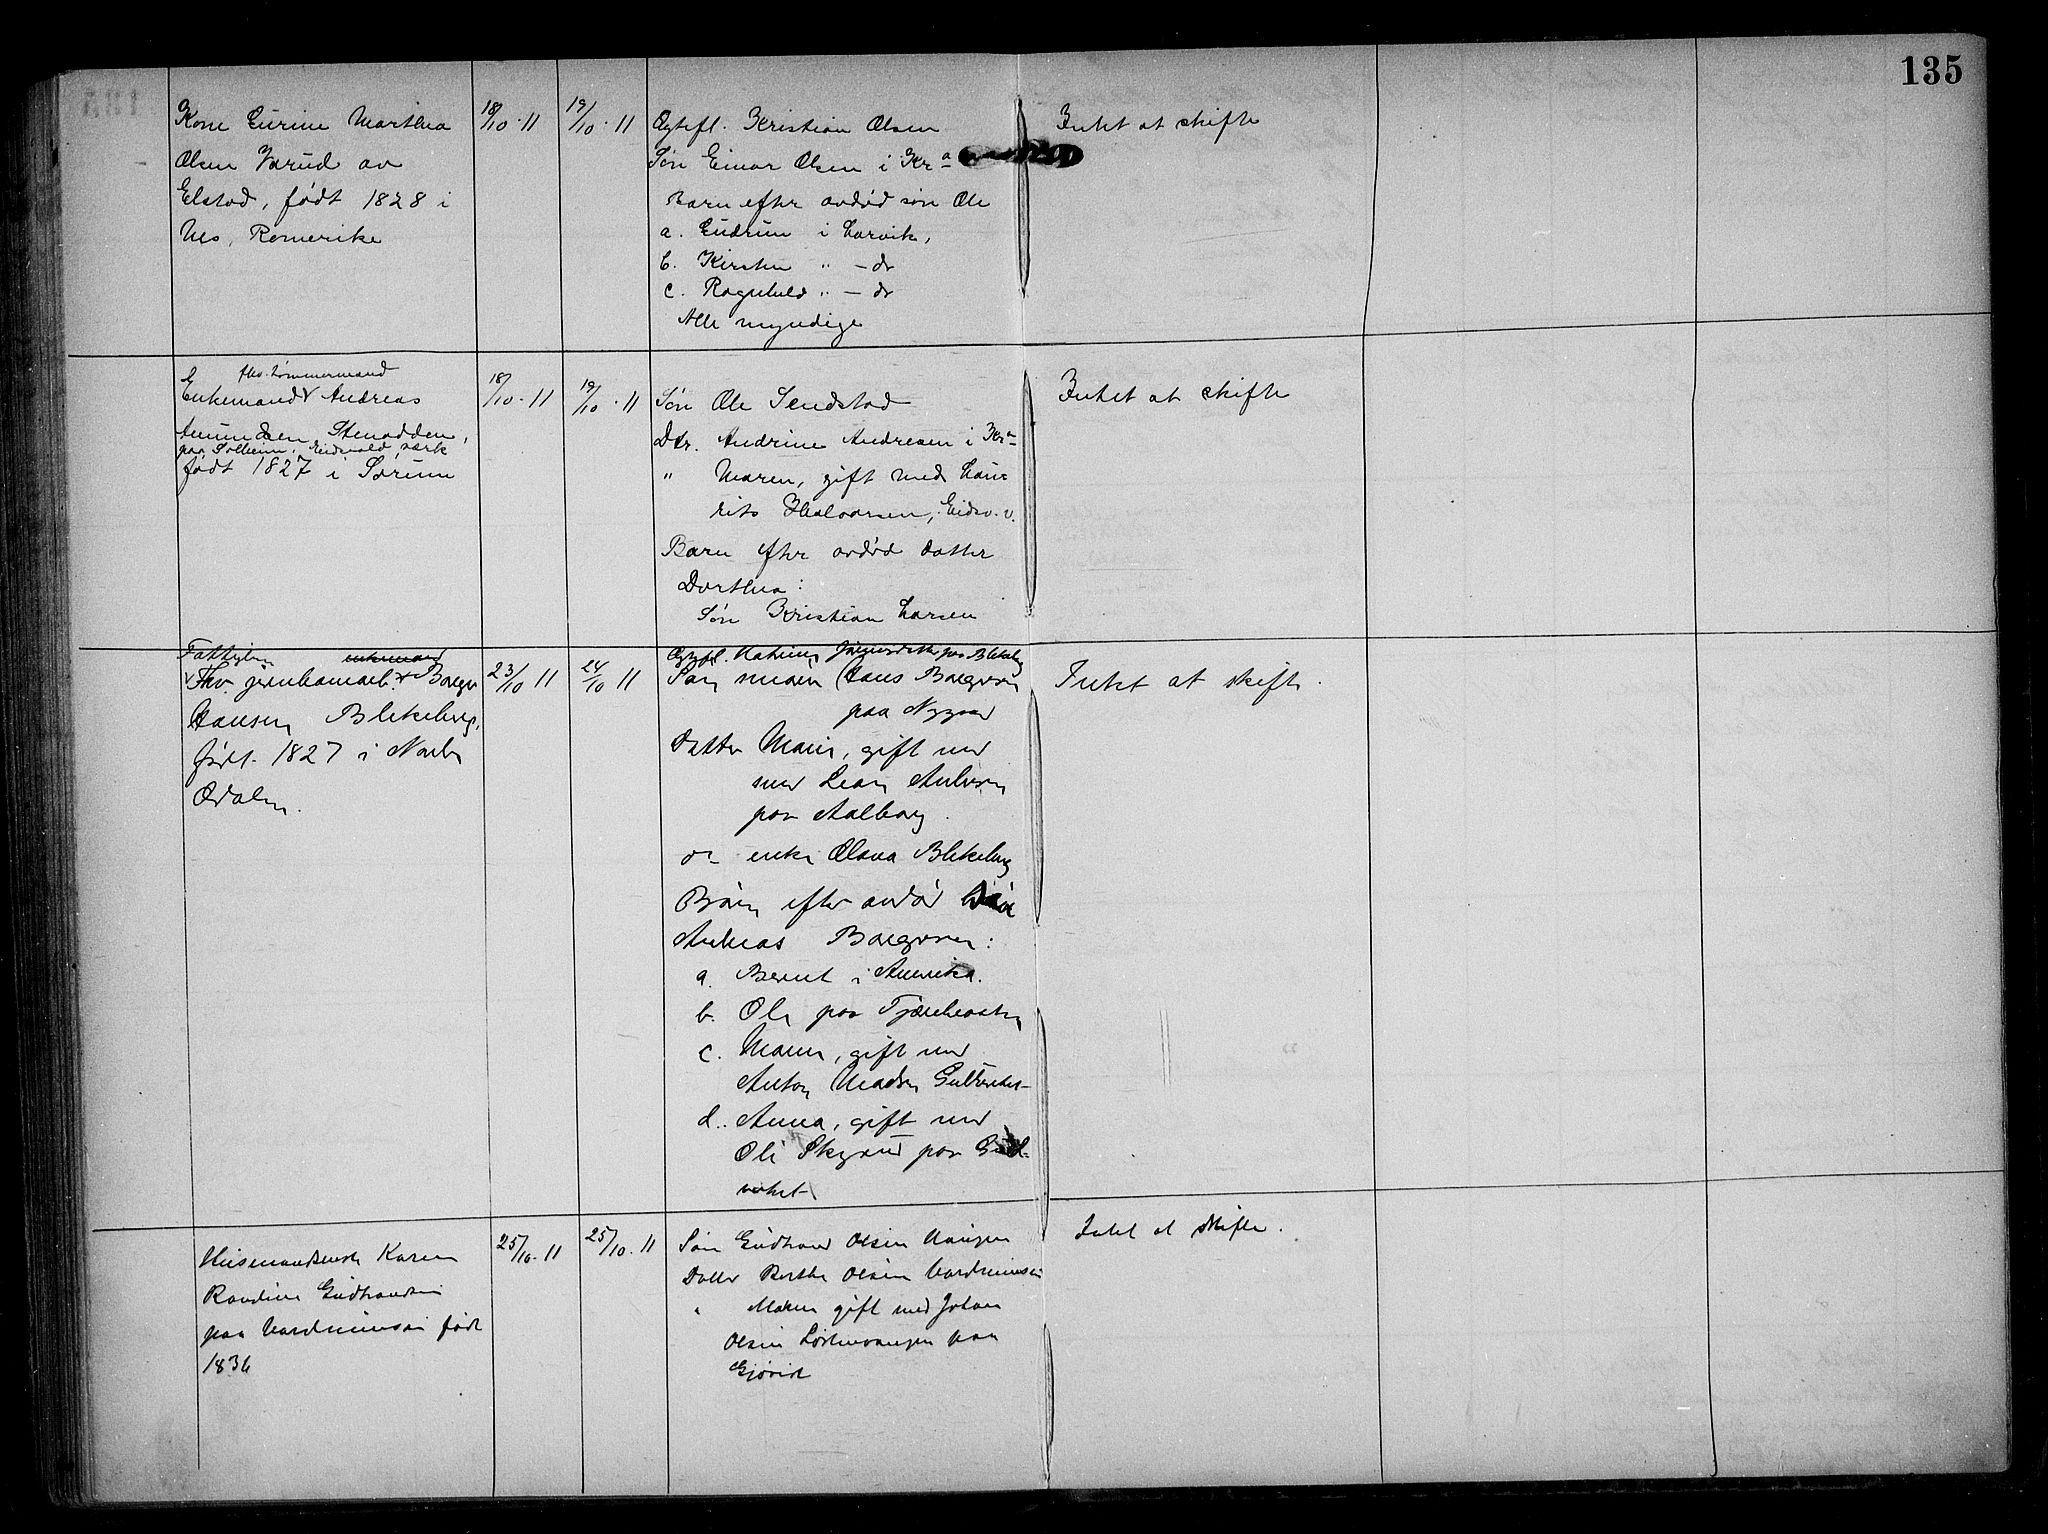 135
Kone Gurine Marthea
Olsen Varud av
Elstad, født 1828 i
Nes, Romerike
18/10 · 11
19/10 · 11
Egtefl. Kristian Olsen
Søn Einar Olsen i Kr a
Barn efter avdød søn Ole
a. Gudrun i Larvik,
b. Kirsten " - do
c. Ragnhild " - do
Alle myndige
Intet at skifte
fhv. tømmermand
Enkemand Andreas
Amundsen Stenodden,
paa Solheim, Eidsvold værk
født 1827 i Sørum
18/10 · 11
19/10 · 11
Søn Ole Sendstad
Dtr. Andrine Andresen i Kr a
" Maren, gift med Lau-
rits Halvorsen, Eidsv. v.
Barn efter avdød datter
Dorthea:
Søn Kristian Larsen
Intet at skifte
Fattiglem enkemand
Fhv. jernbanearb. Borger
Hansen Blekeberg,
født 1827 i Nordre
Odalen.
23/10 11
24/10 11
Egtefl. paa Blekeberg
Søn Hans Borgersen
paa Nygaard
Datter Marie, gift med
med
paa Aalborg.
do enke Olava Blekeberg
Børn efter avdød søn
Andreas Borgersen:
a. Bernt i Amerika.
b. Ole paa
c. Maren, gift med
Anton Madsen
d. Anna, gift med
Ole Skyrud paa Guld-
verket
Intet at skifte.
Husmandsenke Karen
Randine Gudbrandsen
paa født
1836
25/10 · 11
25/10 · 11
Søn Gudbrand Olsen Haugen
Datter Berthe Olsen
" Maren gift med Johan
Olsen paa
Gjøvik
Intet at skifte.